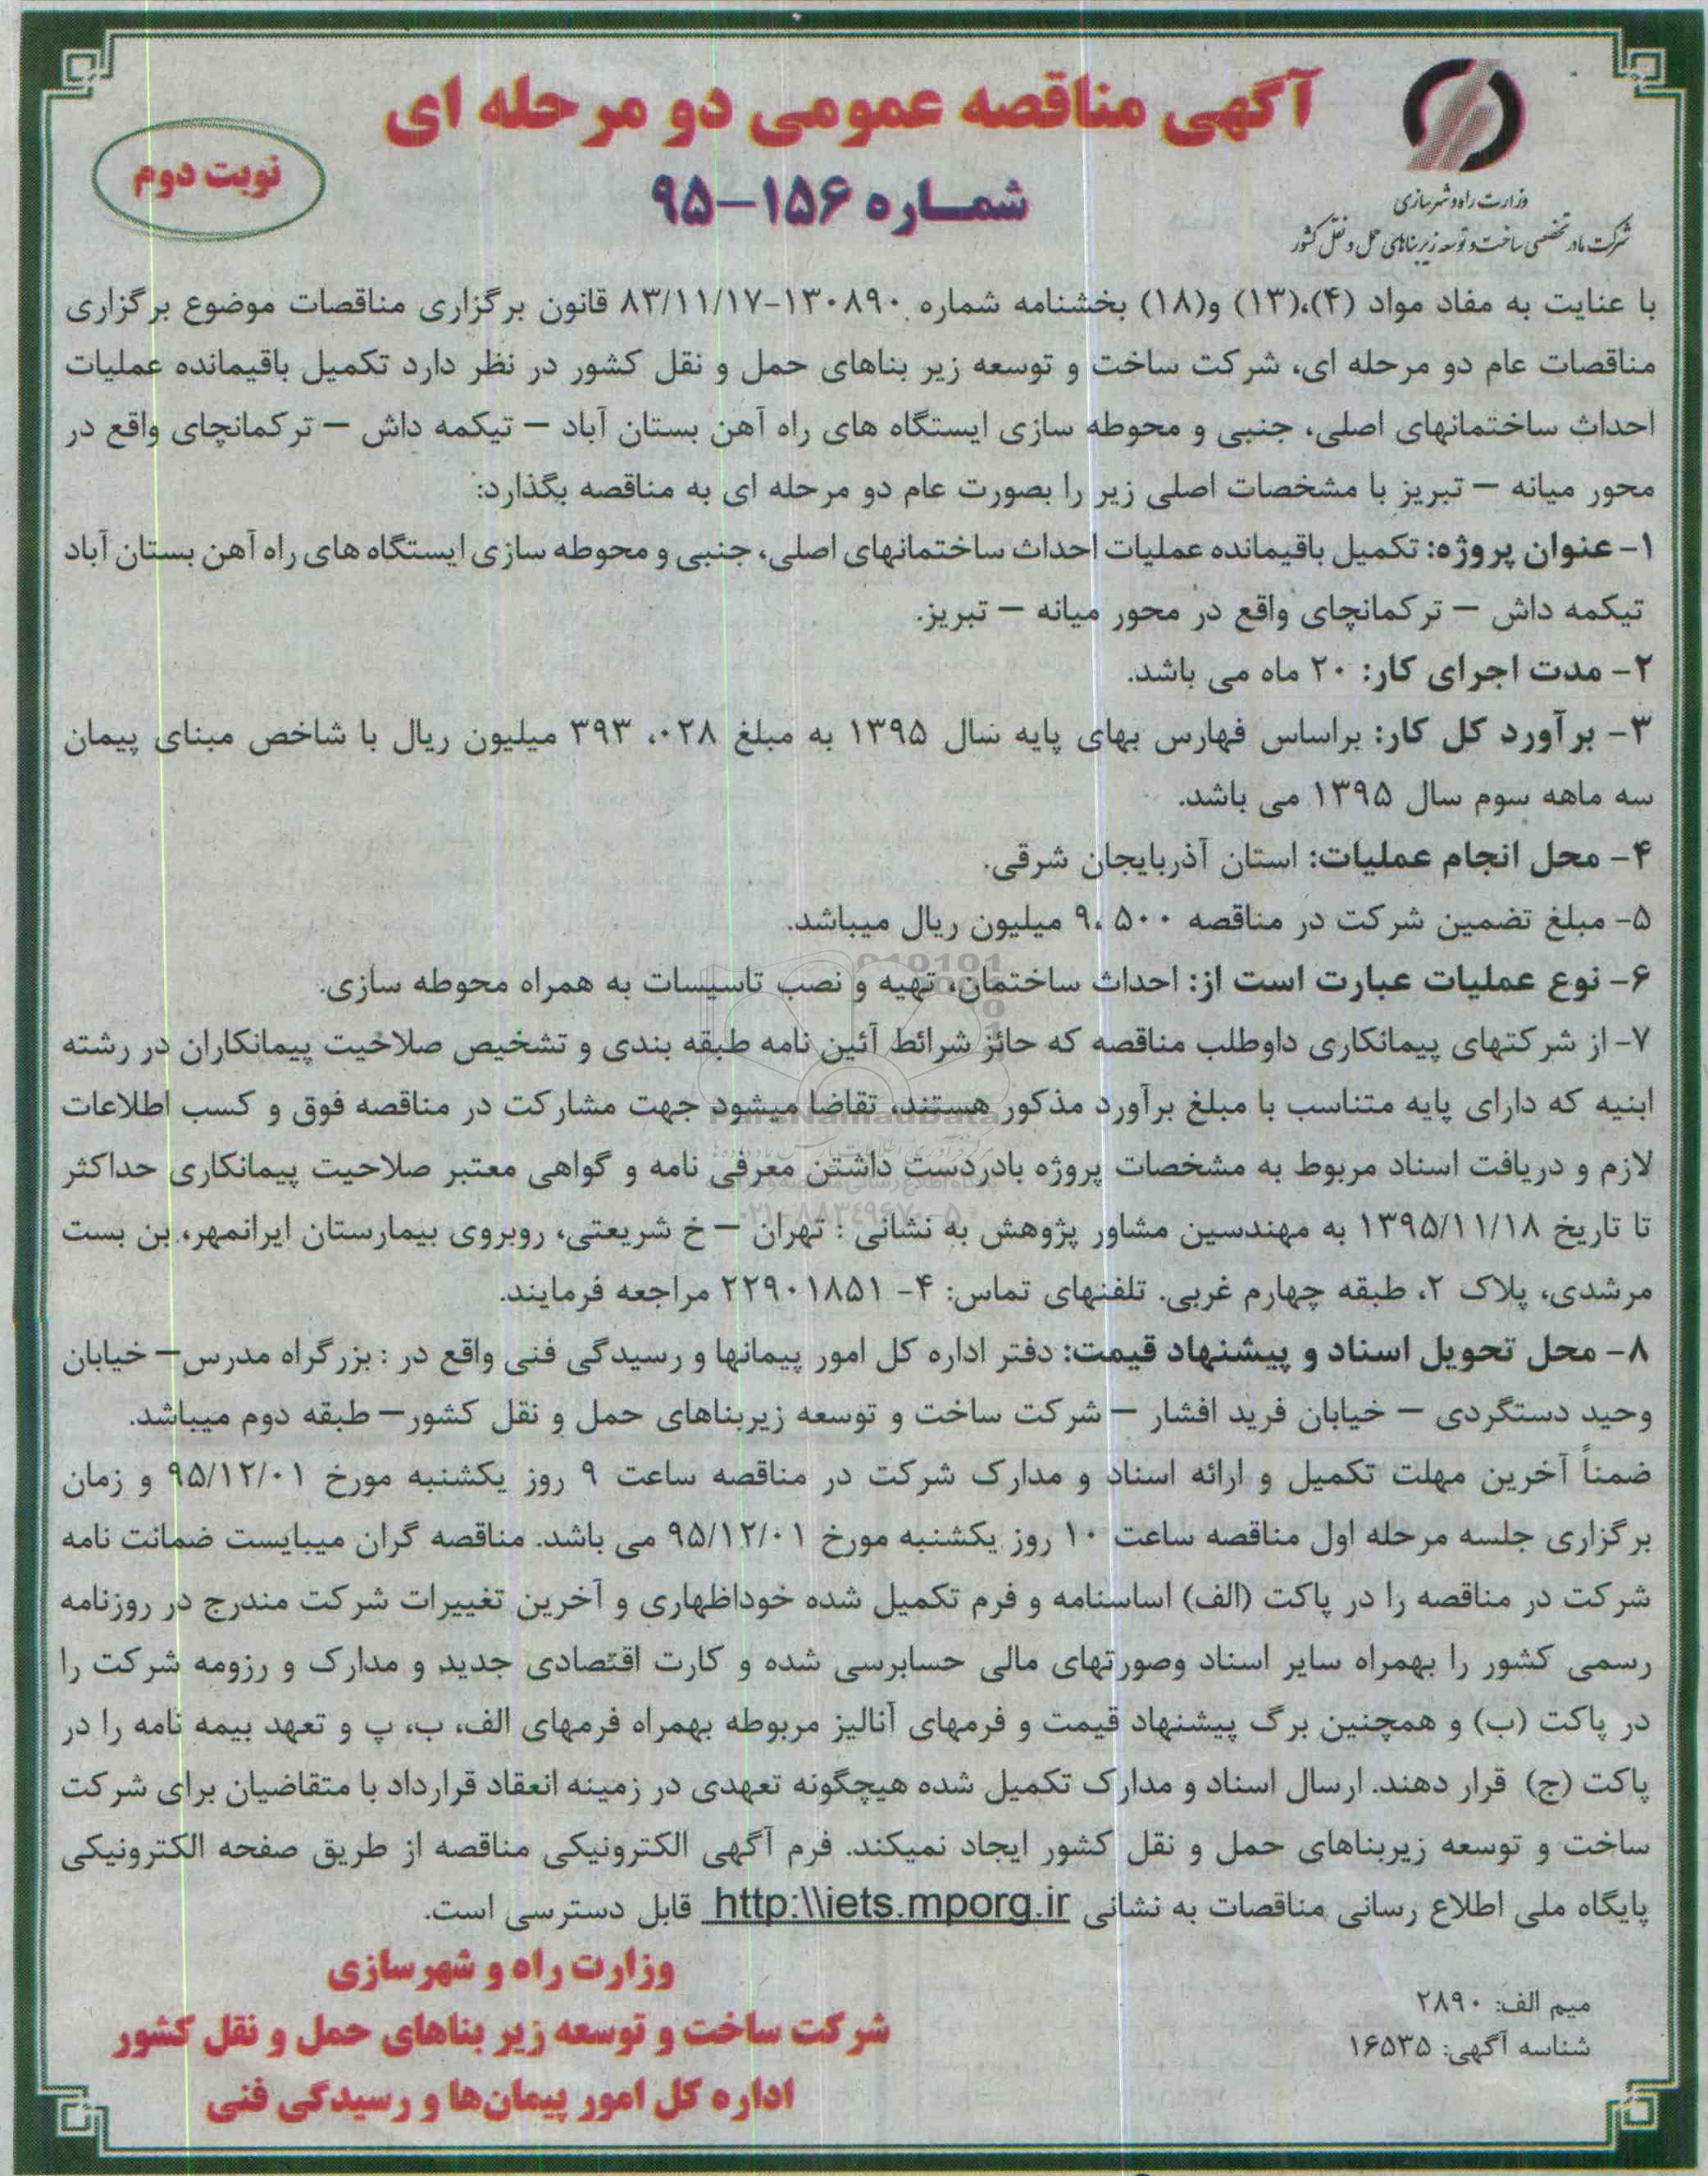 آگهی مناقصه عمومی دو مرحله ای
شماره ۱۵۶-۹۵
نوبت دوم
وزارت راه و شهرسازی
شرکت مادر تخصصی ساخت و توسعه زیربناهای حمل و نقل کشور
با عنایت به مفاد مواد (۴)،(۱۳) و(۱۸) بخشنامه شماره ۱۳۰۸۹۰-۸۳/۱۱/۱۷ قانون برگزاری مناقصات موضوع برگزاری
مناقصات عام دو مرحله ای، شرکت ساخت و توسعه زیر بناهای حمل و نقل کشور در نظر دارد تکمیل باقیمانده عملیات
احداث ساختمانهای اصلی، جنبی و محوطه سازی ایستگاه های راه آهن بستان آباد – تیکمه داش – ترکمانچای واقع در
محور میانه – تبریز با مشخصات اصلی زیر را بصورت عام دو مرحله ای به مناقصه بگذارد:
۱- عنوان پروژه: تکمیل باقیمانده عملیات احداث ساختمانهای اصلی، جنبی و محوطه سازی ایستگاه های راه آهن بستان آباد
تیکمه داش – ترکمانچای واقع در محور میانه – تبریز.
۲- مدت اجرای کار: ۲۰ ماه می باشد.
۳- برآورد کل کار: براساس فهارس بهای پایه سال ۱۳۹۵ به مبلغ ۰۲۸، ۳۹۳ میلیون ریال با شاخص مبنای پیمان
سه ماهه سوم سال ۱۳۹۵ می باشد.
۴- محل انجام عملیات: استان آذربایجان شرقی.
۵- مبلغ تضمین شرکت در مناقصه ۵۰۰ ،۹ میلیون ریال میباشد.
۶- نوع عملیات عبارت است از: احداث ساختمان، تهیه و نصب تاسیسات به همراه محوطه سازی.
۷- از شرکتهای پیمانکاری داوطلب مناقصه که حائز شرائط آئین نامه طبقه بندی و تشخیص صلاحیت پیمانکاران در رشته
ابنیه که دارای پایه متناسب با مبلغ برآورد مذکور هستند، تقاضا میشود جهت مشارکت در مناقصه فوق و کسب اطلاعات
لازم و دریافت اسناد مربوط به مشخصات پروژه بادردست داشتن معرفی نامه و گواهی معتبر صلاحیت پیمانکاری حداکثر
تا تاریخ ۱۳۹۵/۱۱/۱۸ به مهندسین مشاور پژوهش به نشانی : تهران – خ شریعتی، روبروی بیمارستان ایرانمهر، بن بست
مرشدی، پلاک ۲، طبقه چهارم غربی. تلفنهای تماس: ۴- ۲۲۹۰۱۸۵۱ مراجعه فرمایند.
۸- محل تحویل اسناد و پیشنهاد قیمت: دفتر اداره کل امور پیمانها و رسیدگی فنی واقع در : بزرگراه مدرس– خیابان
وحید دستگردی – خیابان فرید افشار – شرکت ساخت و توسعه زیربناهای حمل و نقل کشور– طبقه دوم میباشد.
ضمناً آخرین مهلت تکمیل و ارائه اسناد و مدارک شرکت در مناقصه ساعت ۹ روز یکشنبه مورخ ۹۵/۱۲/۰۱ و زمان
برگزاری جلسه مرحله اول مناقصه ساعت ۱۰ روز یکشنبه مورخ ۹۵/۱۲/۰۱ می باشد. مناقصه گران میبایست ضمانت نامه
شرکت در مناقصه را در پاکت (الف) اساسنامه و فرم تکمیل شده خوداظهاری و آخرین تغییرات شرکت مندرج در روزنامه
رسمی کشور را بهمراه سایر اسناد وصورتهای مالی حسابرسی شده و کارت اقتصادی جدید و مدارک و رزومه شرکت را
در پاکت (ب) و همچنین برگ پیشنهاد قیمت و فرمهای آنالیز مربوطه بهمراه فرمهای الف، ب، پ و تعهد بیمه نامه را در
پاکت (ج) قرار دهند. ارسال اسناد و مدارک تکمیل شده هیچگونه تعهدی در زمینه انعقاد قرارداد با متقاضیان برای شرکت
ساخت و توسعه زیربناهای حمل و نقل کشور ایجاد نمیکند. فرم آگهی الکترونیکی مناقصه از طریق صفحه الکترونیکی
پایگاه ملی اطلاع رسانی مناقصات به نشانی http:\\iets.mporg.ir قابل دسترسی است.
وزارت راه و شهرسازی
شرکت ساخت و توسعه زیر بناهای حمل و نقل کشور
اداره کل امور پیمان‌ها و رسیدگی فنی
میم الف: ۲۸۹۰
شناسه آگهی: ۱۶۵۳۵